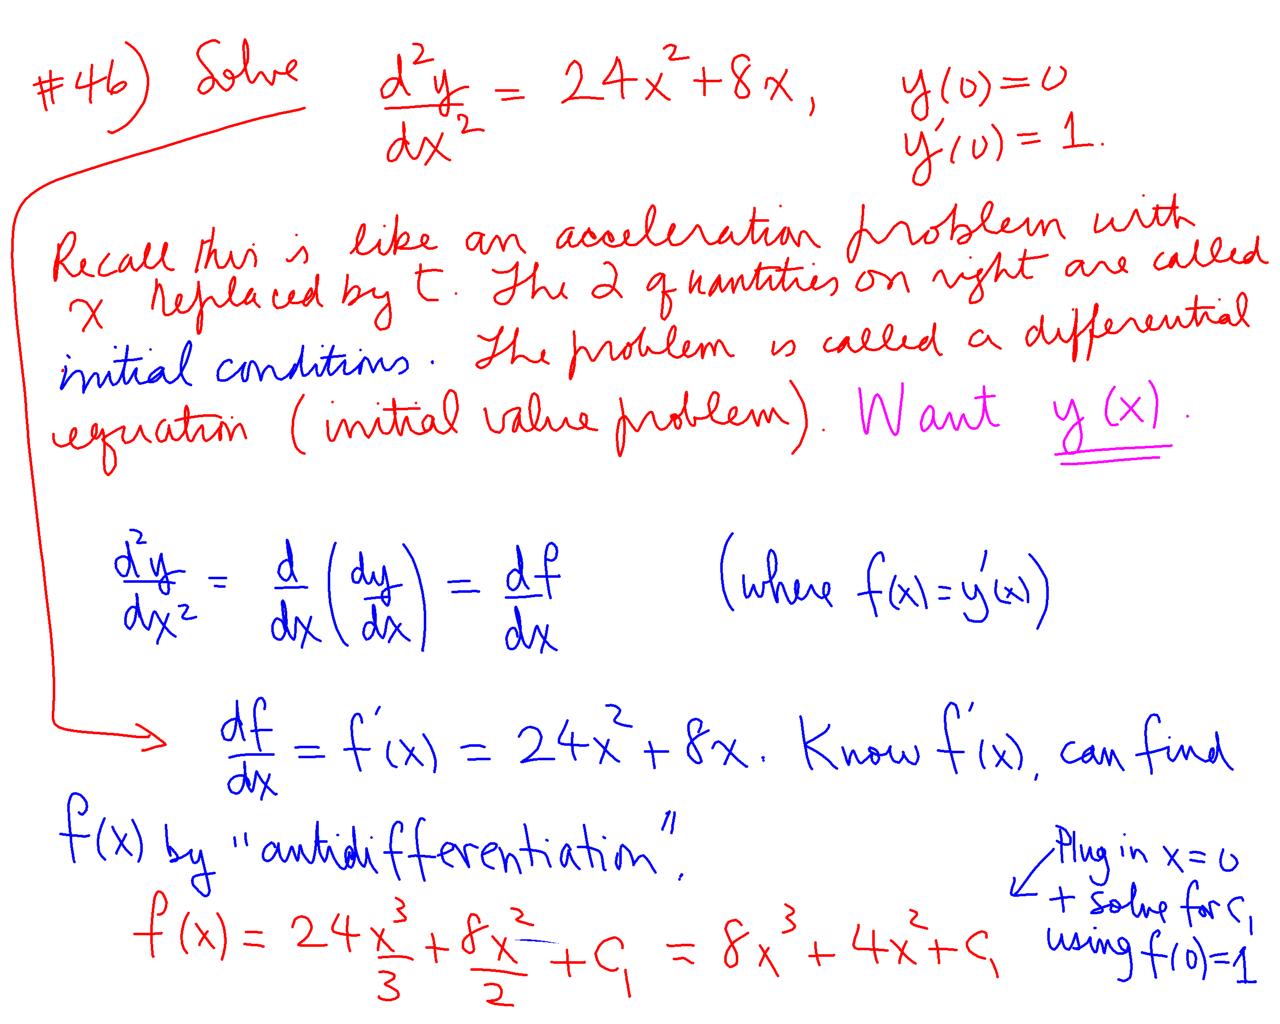 #46) Solve d²y/dx² = 24x² + 8x, y(0) = 0
y'(0) = 1.
Recall this is like an acceleration problem with
x replaced by t. The 2 quantities on right are called
initial conditions. The problem is called a differential
equation (initial value problem). Want y(x).
d²y/dx² = d/dx (dy/dx) = df/dx (where f(x) = y'(x))
df/dx = f'(x) = 24x² + 8x. Know f'(x), can find
f(x) by "antidifferentiation".
f(x) = 24x³/3 + 8x²/2 + C₁ = 8x³ + 4x² + C₁
Plug in x = 0
+ solve for C₁
using f(0) = 1